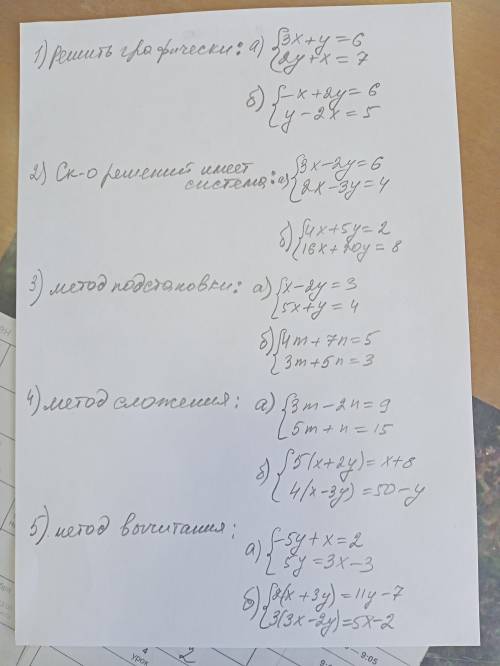 1) Решить графически: а) {3x+y=6
{2y+x=7
б) {-x+2y=6
{y-2x=5
2) Ск-о решений имеет
система: а) {3x-2y=6
{2x-3y=4
б) {4x+5y=2
{16x+20y=8
3) метод подстановки: а) {x-2y=3
{5x+y=4
б) {4m+7n=5
{3m+5n=3
4) метод сложения: а) {3m-2n=9
{5m+n=15
б) {5(x+2y)=x+8
{4(x-3y)=50-y
5) метод вычитания:
а) {-5y+x=2
{5y=3x-3
б) {2(x+3y)=11y-7
{3(3x-2y)=5x-2
4
урок
2
9:05